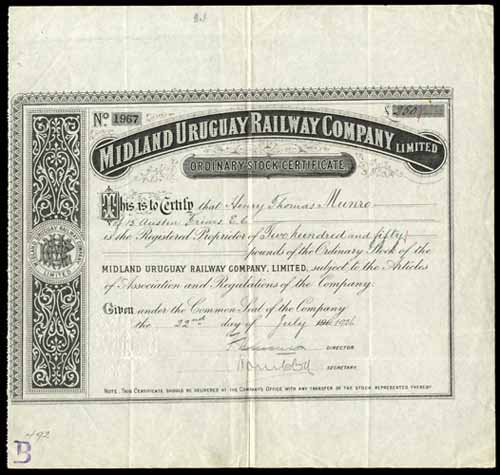 No 1967 £250/
MIDLAND URUGUAY RAILWAY COMPANY LIMITED
ORDINARY STOCK CERTIFICATE.
This is to Certify that Henry Thomas Munro
of 13 Austin Friars E.C.
is the Registered Proprietor of Two hundred and fifty
pounds of the Ordinary Stock of the
MIDLAND URUGUAY RAILWAY COMPANY, LIMITED, subject to the Articles
of Association and Regulations of the Company.
Given under the Common Seal of the Company
the 22nd day of July 1926
DIRECTOR
SECRETARY
NOTE. THIS CERTIFICATE SHOULD BE DELIVERED AT THE COMPANY'S OFFICE WITH ANY TRANSFER OF THE STOCK REPRESENTED THEREBY
MIDLAND URUGUAY RAILWAY COMPANY
LIMITED
492
B